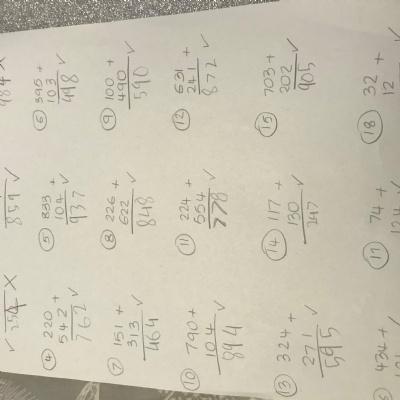 859 ✓
④ 220 +
542
762 ✓
⑤ 833 +
104
937 ✓
⑥ 395 +
103
498 ✓
⑦ 151 +
313
464 ✓
⑧ 226 +
622
848 ✓
⑨ 100 +
490
590 ✓
⑩ 790 +
104
894 ✓
⑪ 224 +
554
778 ✓
⑫ 631 +
241
872 ✓
⑬ 324 +
271
595 ✓
⑭ 117 +
130
247 ✓
⑮ 703 +
202
905 ✓
434 +
⑰ 74 +
⑱ 32 +
12